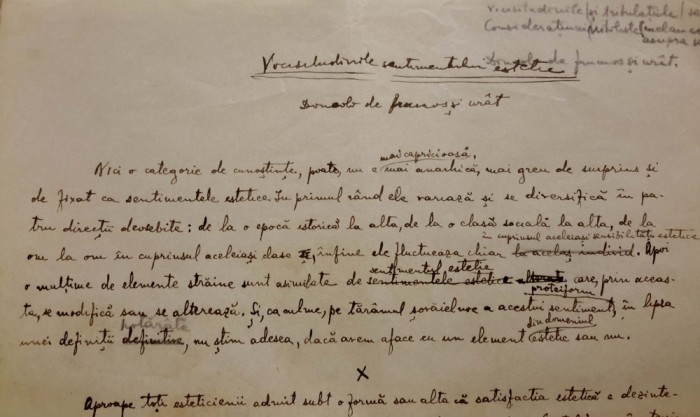 Vicisitudinile și tribulațiile
Considerațiuni
asupra
Dincolo de frumos și urât.
Vicisitudinile sentimentului estetic
Dincolo de frumos și urât
mai capricioasă,
Nici o categorie de cunoștințe, poate, nu e mai anarhică, mai greu de surprins și
de fixat ca sentimentele estetice. In primul rând ele variază și se diversifică în pa-
tru direcții deosebite: de la o epocă istorică la alta, de la o clasă socială la alta, de la
în cuprinsul aceleiași sensibilități estetice
om la om în cuprinsul aceleiași clase, înfine ele fluctuează chiar la același individ. Apoi
sentimentul estetic
o mulțime de elemente străine sunt asimilate de sentimentele estetice care, prin aceas-
proteiform
ta, se modifică sau se alterează. Și, ca culme, pe tărâmul șovăielnic a acestui sentiment, în lipsa
hotărâte din domeniul
unei definiții definitive, nu știm adesea, dacă avem aface cu un element estetic sau nu.
X
Aproape toți esteticienii admit subt o formă sau alta că satisfacția estetică e dezinte-